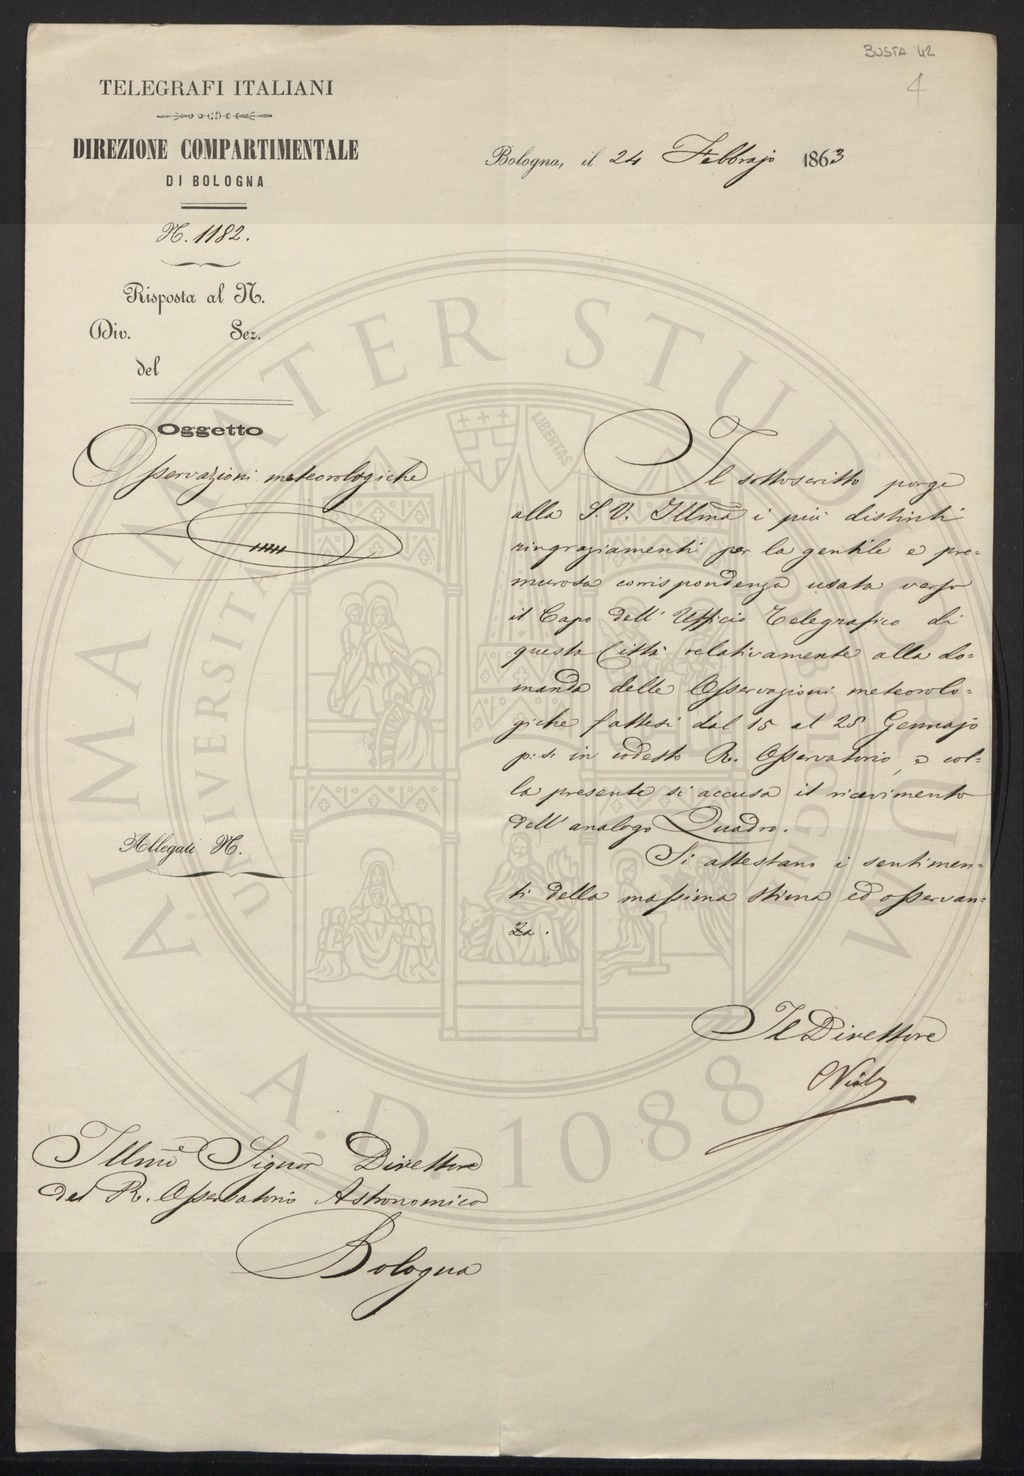 BUSTA 42
4
TELEGRAFI ITALIANI
DIREZIONE COMPARTIMENTALE
DI BOLOGNA
Bologna, il 24 Febbrajo 1863
N. 1182.
Risposta al N.
Div. Sez.
del
Oggetto
Osservazioni meteorologiche
Il sottoscritto porge
alla S. V. Illma i più distinti
ringraziamenti per la gentile e pre=
murosa corrispondenza usata verso
il Capo dell' Ufficio Telegrafico di
questa Città relativamente alla do=
manda delle Osservazioni meteorolo=
giche fattesi dal 15 al 25 Gennajo
p: p: in codesto R. Osservatorio, e col=
la presente si accusa il ricevimento
dell' analogo Quadro.
Si attestano i sentimen=
ti della massima stima ed osservan=
za.
Allegati N.
Il Direttore
Illmo Signor Direttore
del R. Osservatorio Astronomico
Bologna
ALMA MATER STUDIORUM
UNIVERSITA
LIBERTAS
A.D. 1088